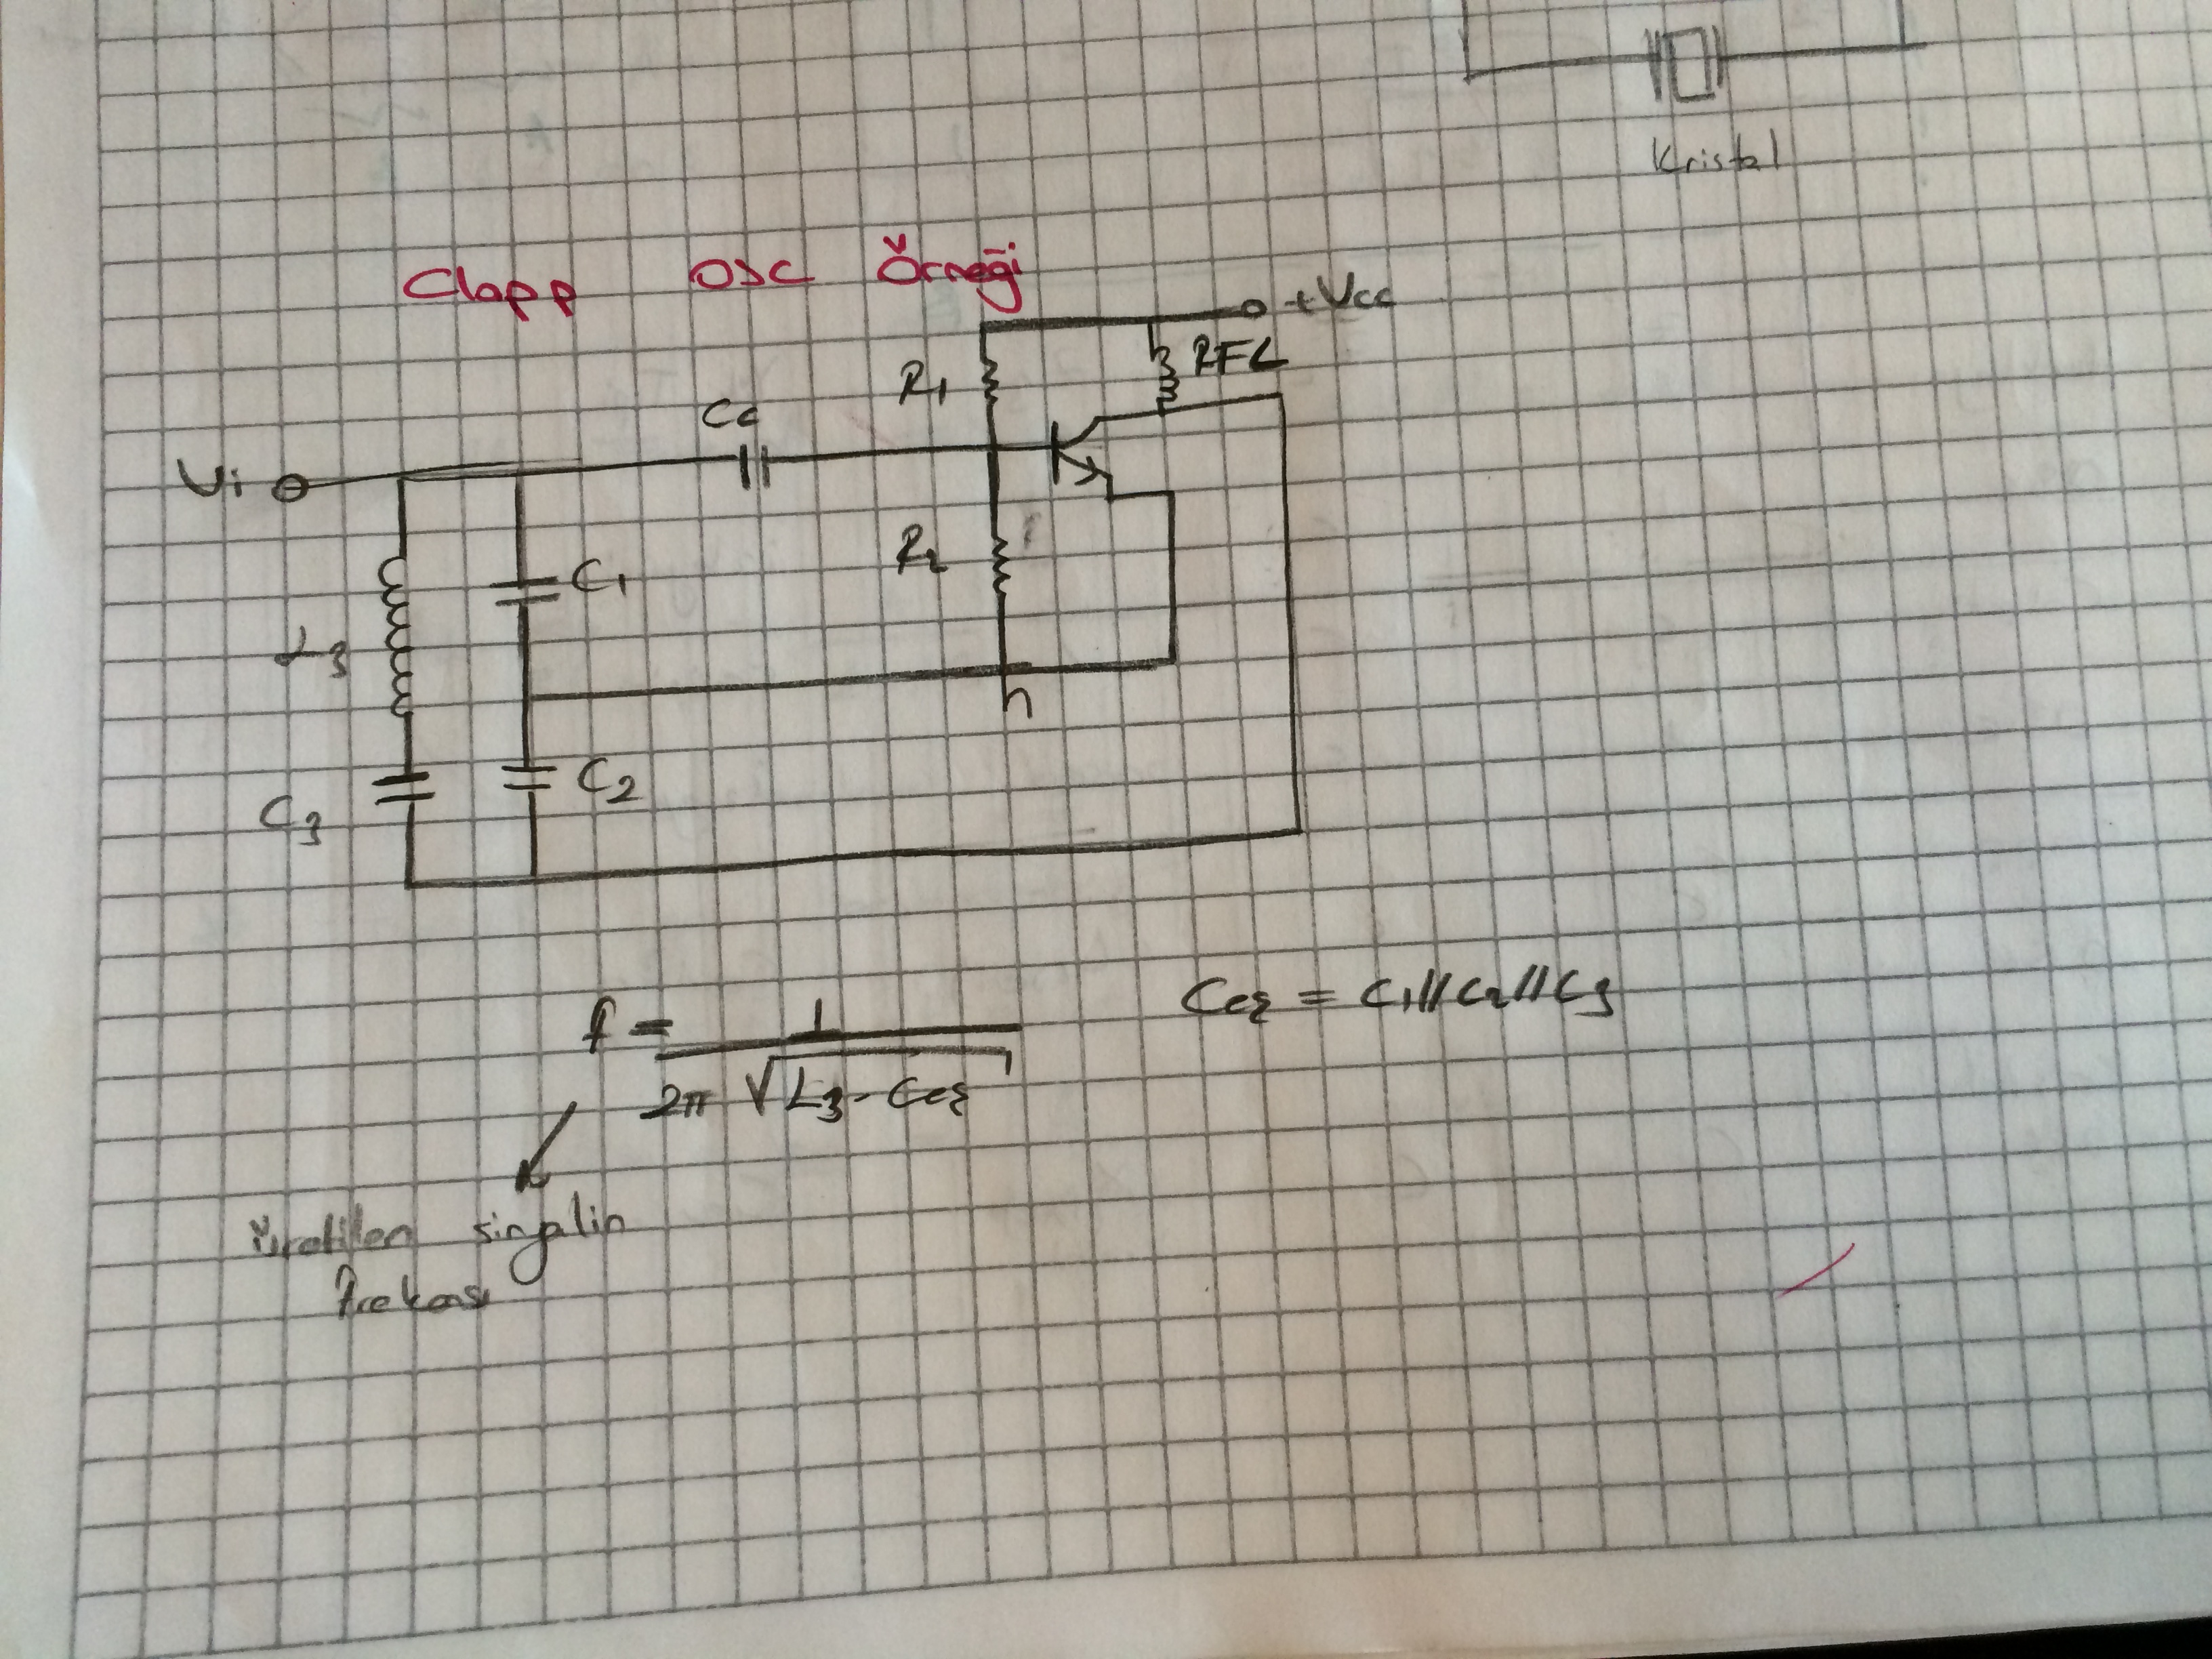 Kristal
Clapp OSC Örneği
+Vcc
R1 RFC
Cc
Vi
R2
C1
L3
C2
C3
f = 1 / 2π √L3.Ceş
Ceş = C1//C2//C3
üretilen sinyalin
frekansı